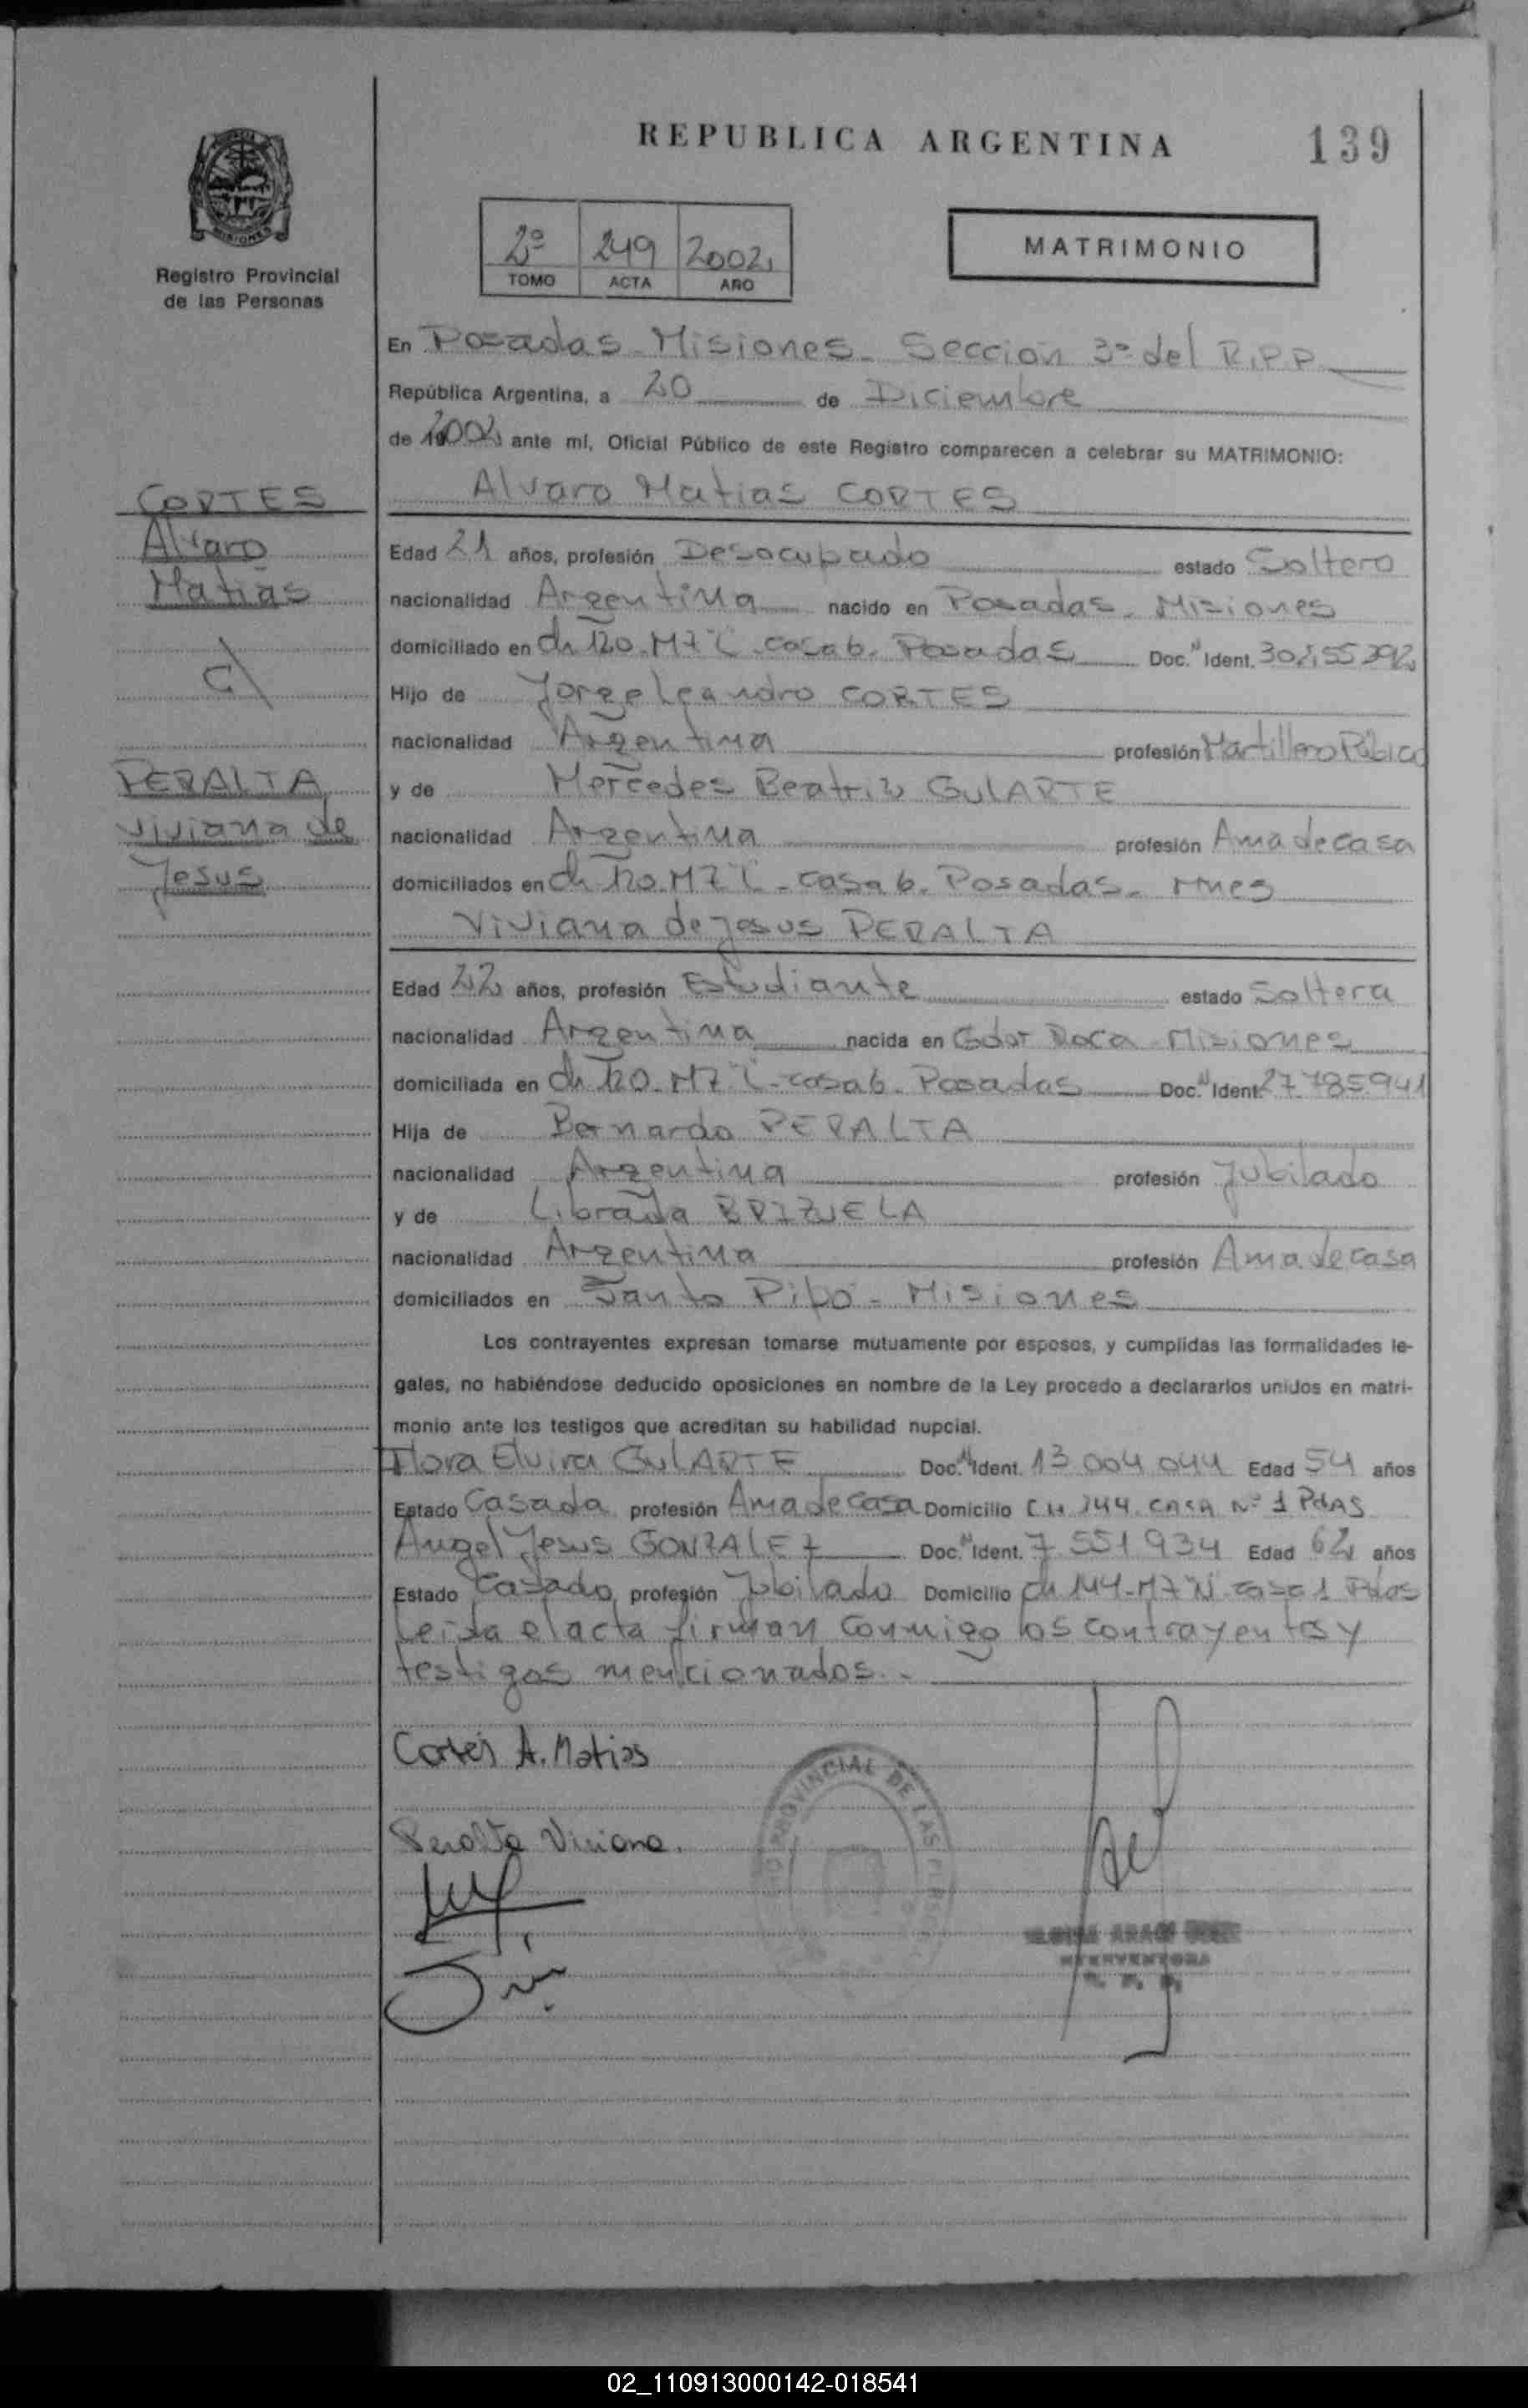 REPUBLICA ARGENTINA
139
MISIONES
Registro Provincial
de las Personas
2º 249 2002
TOMO ACTA AÑO
MATRIMONIO
En Posadas - Misiones - Sección 3ª del R.P.P.
República Argentina, a 20 de Diciembre
de 2002 ante mí, Oficial Público de este Registro comparecen a celebrar su MATRIMONIO:
CORTES
Alvaro
Matias
c/
PERALTA
Viviana de
Jesus
Alvaro Matias CORTES
Edad 21 años, profesión Desocupado estado Soltero
nacionalidad Argentina nacido en Posadas - Misiones
domiciliado en ch 120 - Mz "C" - casa 6 - Posadas Doc. Ident.
Hijo de Jorge Leandro CORTES
nacionalidad Argentina profesión Martillero Público
y de Mercedes Beatriz GULARTE
nacionalidad Argentina profesión Ama de casa
domiciliados en ch 120 - Mz - casa 6 - Posadas - Mnes
Viviana de Jesus PERALTA
Edad 22 años, profesión Estudiante estado Soltera
nacionalidad Argentina nacida en Gdor Roca - Misiones
domiciliada en ch 120 - Mz - casa 6 - Posadas Doc. Ident. 27.785.941
Hija de Bernardo PERALTA
nacionalidad Argentina profesión Jubilado
y de Librada BRIZUELA
nacionalidad Argentina profesión Ama de casa
domiciliados en Santo Pipó - Misiones
Los contrayentes expresan tomarse mutuamente por esposos, y cumplidas las formalidades le-
gales, no habiéndose deducido oposiciones en nombre de la Ley procedo a declararlos unidos en matri-
monio ante los testigos que acreditan su habilidad nupcial.
Flora Elvira GULARTE Doc. Ident. 13.004.044 Edad 54 años
Estado Casada profesión Ama de casa Domicilio CH 144 CASA Nº 1 PdAS
Angel Jesus GONZALEZ Doc. Ident. 7.551.934 Edad 62 años
Estado Casado profesión Jubilado Domicilio ch 144 - Mz "N" casa 1 Pdas
Leida el acta firman conmigo los contrayentes y
testigos mencionados.-
Cortés A. Matias
Peralta Viviana.
PROVINCIAL DE LAS
INTERVENTORA
02_110913000142-018541